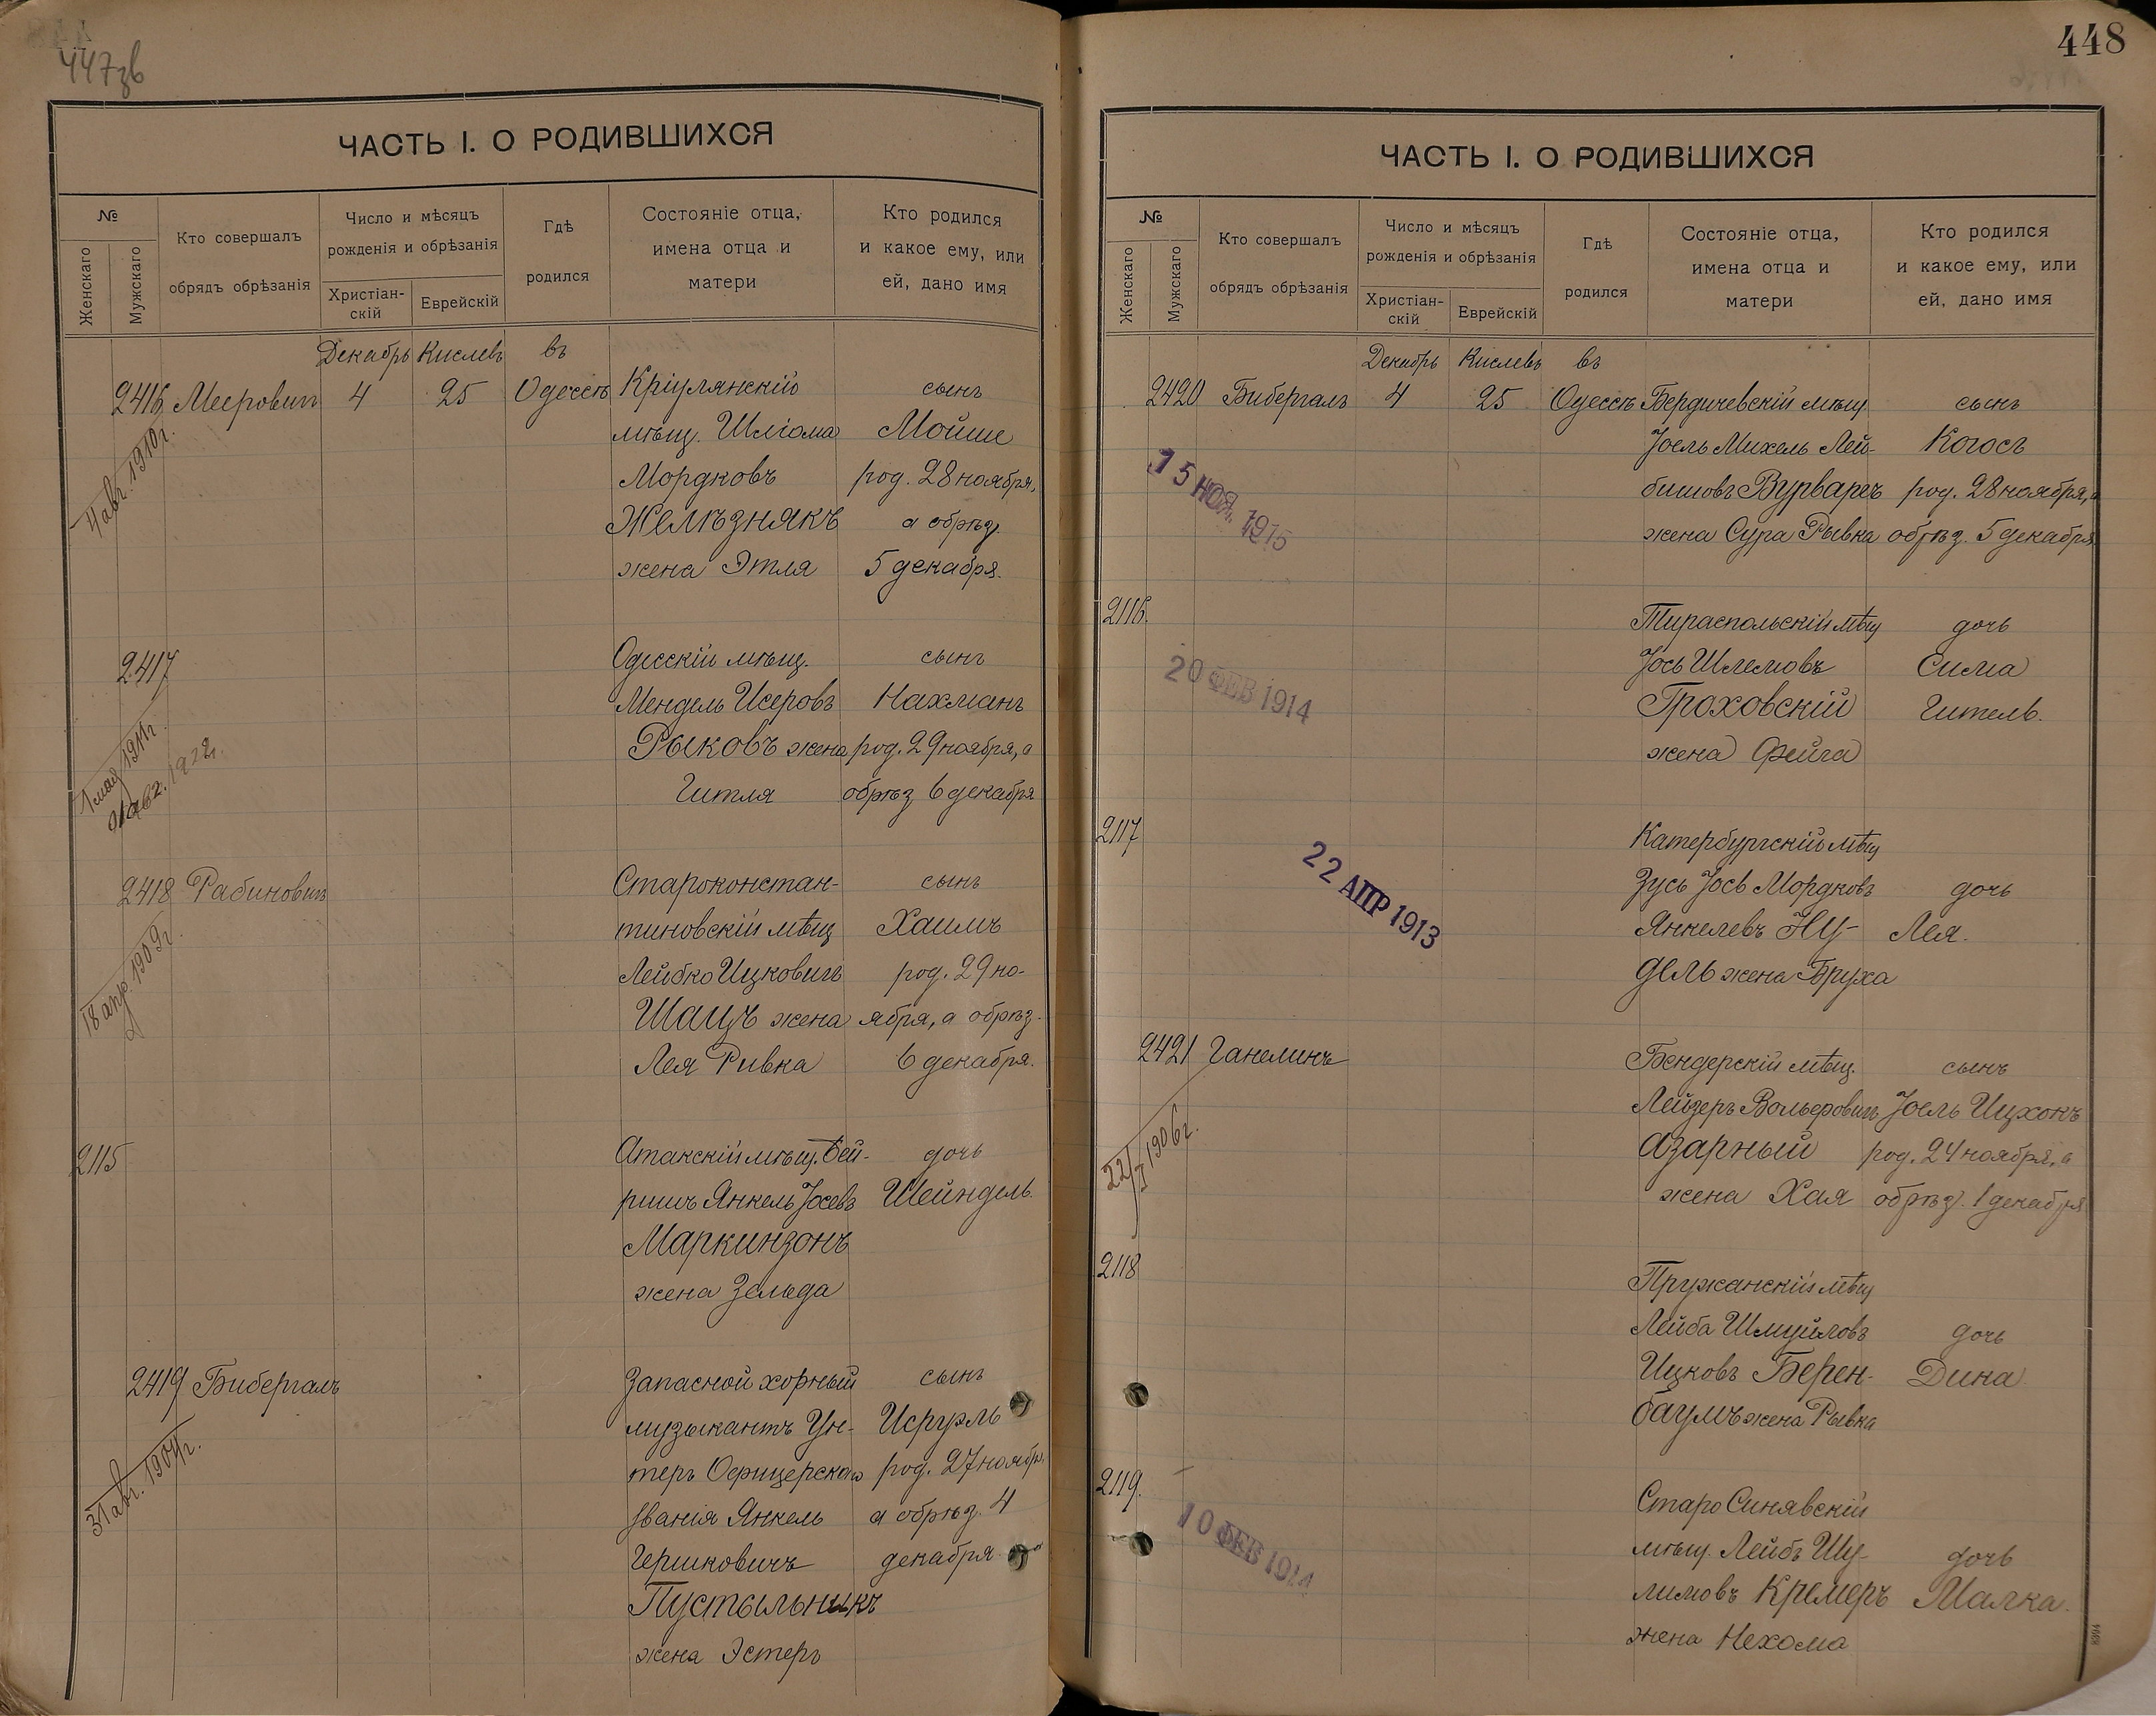 447зв
ЧАСТЬ I. О РОДИВШИХСЯ
№
Женскаго
Мужскаго
Кто совершалъ
обрядъ обрѣзанія
Число и мѣсяцъ
рожденія и обрѣзанія
Христіан-
скій
Еврейскій
Гдѣ
родился
Состояніе отца,
имена отца и
матери
Кто родился
и какое ему, или
ей, дано имя
Декабрь Кислевъ въ
2416 Мееровичъ 4 25 Одессѣ Кріулянскій сынъ
мѣщ. Шліома Мойше
Мордковъ род. 28 ноября,
Желѣзнякъ а обрѣз.
жена Этля 5 декабря.
4 авг. 1910 г.
2417 Одесскій мѣщ. сынъ
Мендель Исеровъ Нахманъ
Рыковъ жена род. 29 ноября, а
Гитля обрѣз 6 декабря
1 мая 1911 г.
1922 г.
2418 Рабиновичъ Староконстан- сынъ
тиновскій мѣщ Хаимъ
Лейбко Ицковичъ род. 29 но-
Шацъ жена ября, а обрѣз.
Лея Ривка 6 декабря.
18 апр. 1909 г.
2115 Атакскій мѣщ. Бей- дочь
ришъ Янкель Іосевъ Шейндель.
Маркинзонъ
жена Зельда
2419 Бибергалъ Запасной хорный сынъ
музыкантъ Ун- Исруэль
теръ Офицерского род. 27 ноябр.
званія Янкель а обрѣз. 4
Гершковичъ декабря
Пустыльникъ
жена Эстеръ
31 авг. 1904 г.
448
ЧАСТЬ I. О РОДИВШИХСЯ
№
Женскаго
Мужскаго
Кто совершалъ
обрядъ обрѣзанія
Число и мѣсяцъ
рожденія и обрѣзанія
Христіан-
скій
Еврейскій
Гдѣ
родился
Состояніе отца,
имена отца и
матери
Кто родился
и какое ему, или
ей, дано имя
Декабрь Кислевъ въ
2420 Бибергалъ 4 25 Одессѣ Бердичевскій мѣщ сынъ
Іоель Михель Лей- Когосъ
бишовъ Вурваргъ род. 28 ноября, а
жена Сура Рывка обрѣз. 5 декабря
15 НОЯ. 1915
2116. Тираспольскій мѣщ дочь
Іось Шлемовъ Сима
Гроховскій Гитель.
жена Фейга
20 ФЕВ 1914
2117 Катербургскій мѣщ
Зусь Іось Мордковъ дочь
Янкелевъ Ну- Лея.
дель жена Бруха
22 АПР 1913
2421 Ганелинъ Бендерскій мѣщ. сынъ
Лейзеръ Вольфовичъ Іоель Ицхокъ
Азарный род. 24 ноября, а
жена Хая обрѣз. 1 декабря
22/I 1906 г.
2118 Пружанскій мѣщ
Лейба Шмуйловъ дочь
Ицковъ Берен- Дина
баумъ жена Рывка
2119. Старо Синявскій
мѣщ. Лейбъ Шу- дочь
лимовъ Кремеръ Малка.
жена Нехома
10 ФЕВ 1914